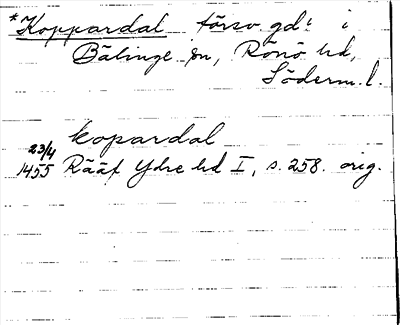 *Koppardal försv. gd. i
Bälinge sn, Rönö hd,
Söderm. l.
kopardal
23/4
1455 Rääf Ydre hd I, s. 258. orig.